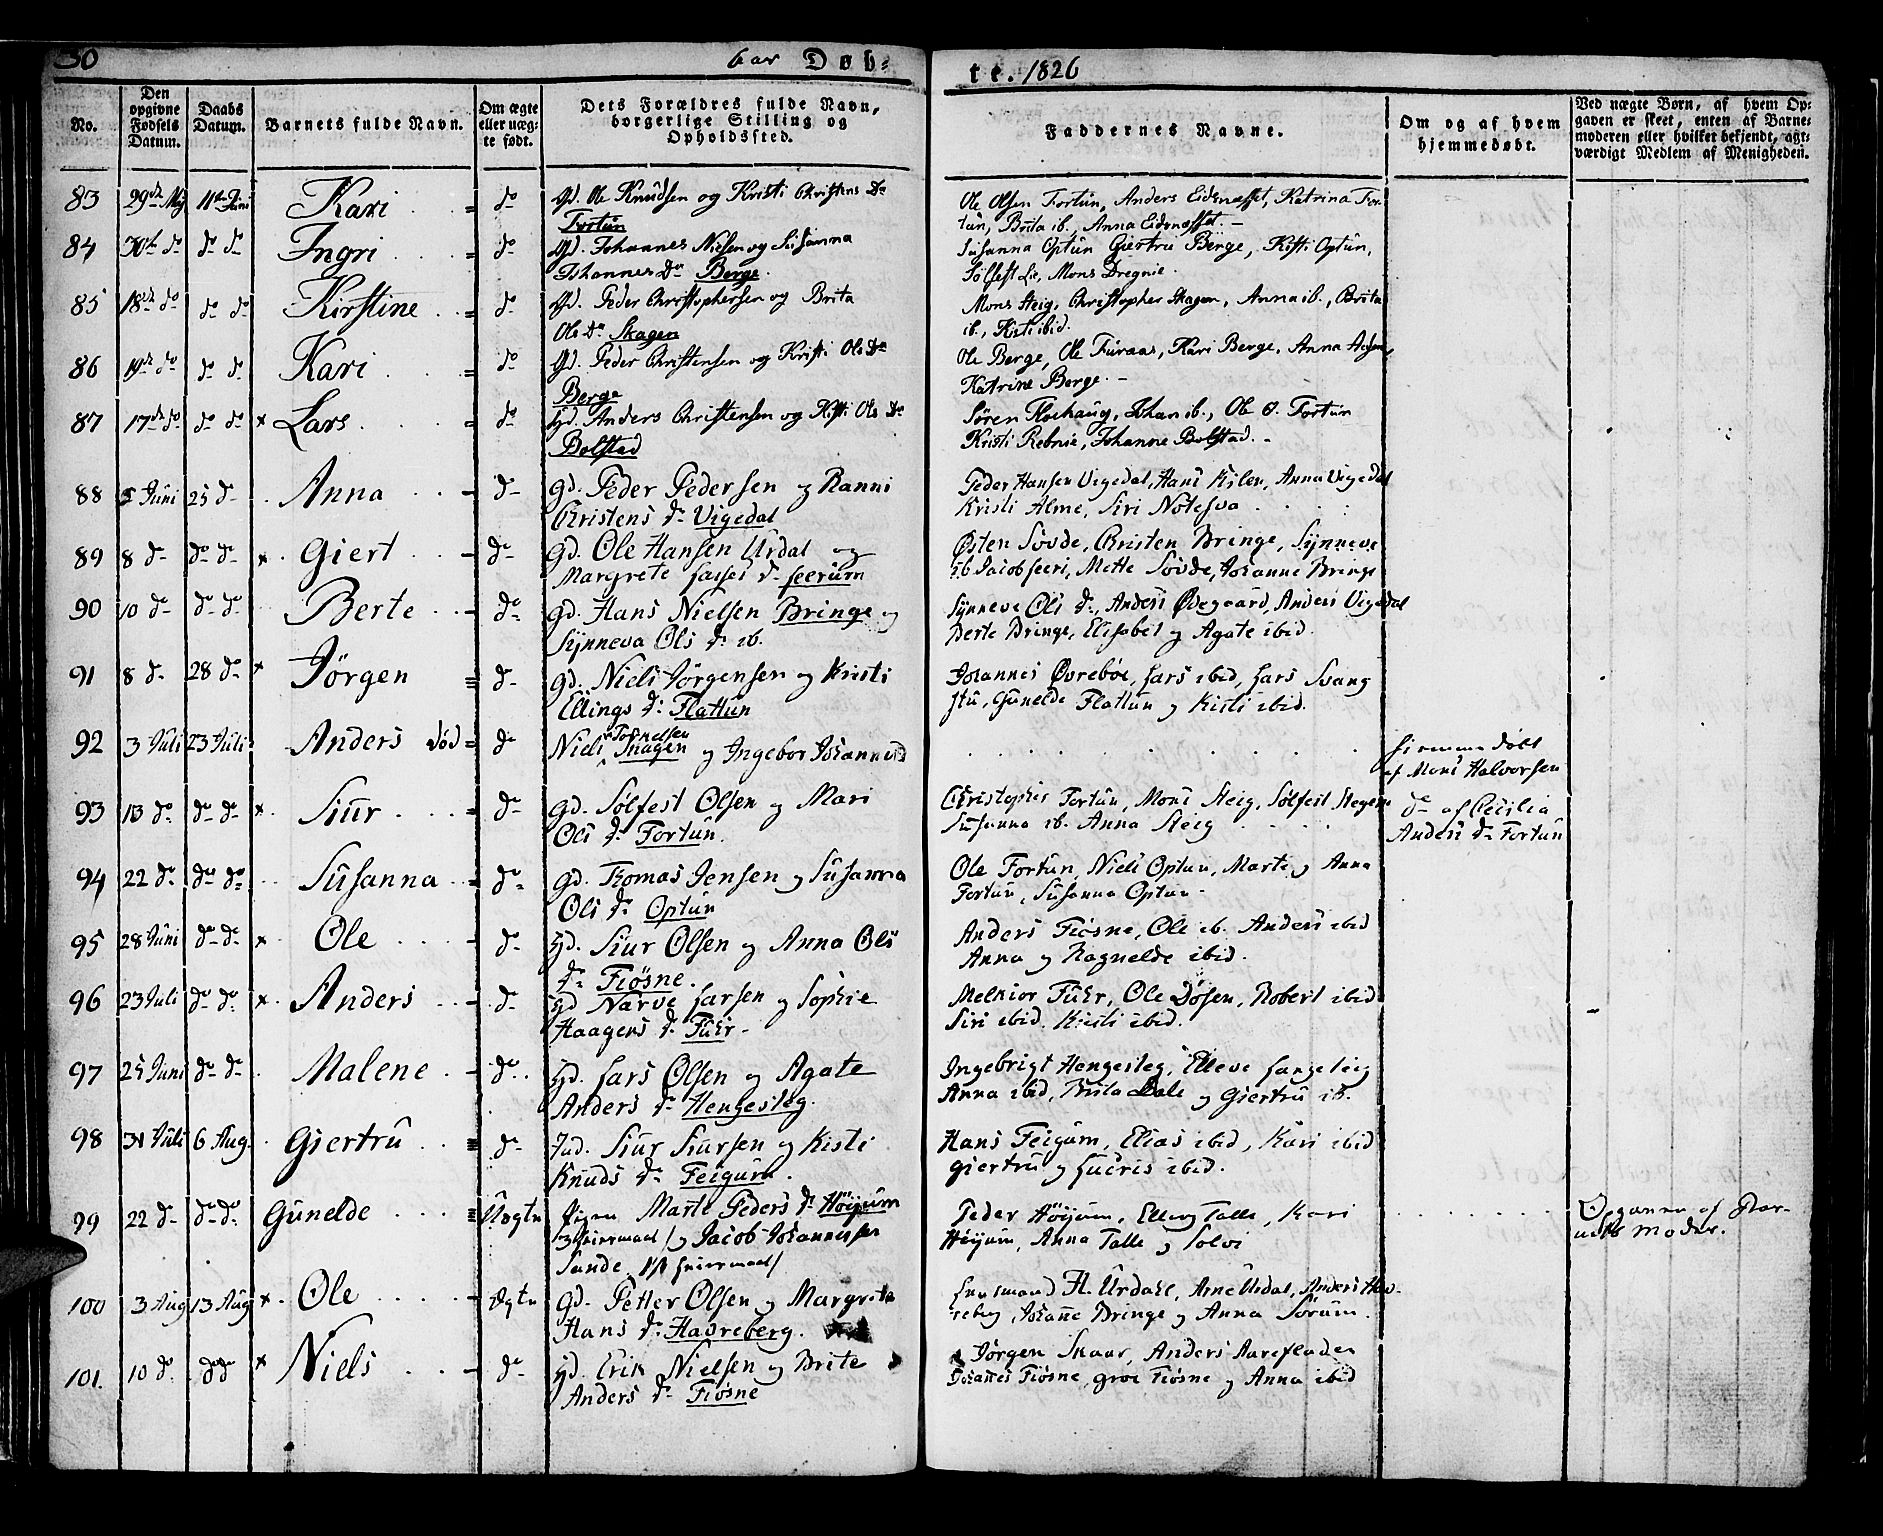 30
bar Døb-
te. 1826
No.
Den opgivne Fødsels Datum.
Daabs Datum.
Barnets fulde Navn.
Om ægte eller uæg- te født.
Dets Forældres fulde Navn, borgerlige Stilling og Opholdssted.
Faddernes Navne.
Om og af hvem hjemmedøbt.
Ved uægte Børn, af hvem Op- gaven er skeet, enten af Barne- moderen eller hvilket bekjendt, agt- værdigt Medlem af Menigheden.
83 29de Mij 11te Juni Kari do Gd. Ole Knudsen og Kristi Christens Dr
Fortun
Ole Olsen Fortun, Anders Eidsnæsset, Katrina For-
tun, Brita ib., Anna Eidsnæsset. -
84 30te do do do Ingri do Gd. Johannes Nielsen og Susanna
Johannes Dr Berge.
Susanna Optun Giertru Berge, Kisti Optun,
Sølfest Lie, Mons Dregnie.
85 18de do do do Kirstine do Gd. Peder Christophersen og Brita
Ols Dr Skagen
Mons Steig, Christopher Skagen, Anna ib., Brita
ib., Kisti ibid.
86 19de do do do Kari do Gd. Peder Christensen og Kristi Ols Dr
Berge
Ole Berge, Ole Furaas, Kari Berge, Anna
Katrine Berge. -
87 17de do do do x Lars do Hd. Anders Christensen og Kisti Ols Dr
Bolstad
Søren Flohaug, Johan ib., Ole O. Fortun
Kristi Rebnie, Johanne Bolstad. -
88 5 Juni 25 d- Anna d- Gd. Peder Pedersen og Ranni
Christens dr Vigedal
Peder Hansen Vigedal, Hans Kilen, Anna Vigedal
Kristi Alme, Siri Notesva
89 8 d- do do x Giert do- Gd. Ole Hansen Urdal og
Margrete Lasses dr Seerum
Østen Søvde, Christen Bringe, Synneve
ib Jacob Seeri, Mette Søvde, Johanne Bringe
90 10 d- do do Berte do Gd. Hans Nielsen Bringe og
Synneva Ols dr ib.
Synneve Ols dr., Anders Ødegaard, Anders Vigedal
Berte Bringe, Elisabet og Agate ibid.
91 8 d- 28 do x Jörgen d- Gd. Niels Jörgensen og Kristi
Ellings dr Flattun
Johannes Øvrebøe, Lars ibid, Lars Svang
stu, Gunelde Flattun og Kisti ibid.
92 3 Juli 23 Juli Anders død do Niels Snagen og Ingebor Johannesd
hiemmedøbt
af Mons Halvorsen
93 13 do do do x Siur do Gd. Sølfest Olsen og Mari
Ols dr Fortun.
Christopher Fortun, Mons Steig, Sølfest Stegen
Susanna ib. Anna Steig
do af Cecilia
Anders dr Fortun
94 22 do do do Susanna do Gd. Thomas Jensen og Susanna
Ols dr Optun
Ole Fortun, Niels Optun, Marte og Anna
Fortun, Susanna Optun -
95 28 Juni do do x Ole do Hd. Siur Olsen og Anna Ols
dr Fiøsne.
Anders Fiøsne, Ole ib. Anders ibid
Anna og Ragnelde ibid.
96 23 Juli do do x Anders d- Hd Narve Larsen og Sophie
Haagens dr Fuhr -
Melkior Fuhr, Ole Døsen, Robert ibid
Siri ibid. Kristi ibid.
97 25 Juni do do Malene do Hd. Lars Olsen og Agate
Anders dr Hengesteg.
Ingebrigt Hengesteg, Elleve Langeteig
Anna ibid, Brita Dale og Giertru ib.
98 31 Juli 6 Aug. Giertru do Jnd. Siur Siursen og Kisti
Knuds dr Feigum.
Hans Feigum, Elias ibid, Kari ibid
Giertru og Lucris ibid.
99 22 d- do do Gunelde Uægte Pigen Marte Peders dr Höyum
3 Leiermaal / og Jacob Johannessen
Sunde Leiermaal /
Peder Höyum, Ellen Talle, Kari
Höyum, Anna Talle og Solvi
Opgaven af Bar-
nets Moder.
100 3 Aug 13 Aug x Ole Ægte Gd. Petter Olsen og Margreta
Hans dr Havreberg.
H. Urdahl, Arne Urdal, Anders Hav-
reberg, Johanne Bringe og Anna Sørum.
101. 10 do do do x Niels do Hd. Erik Nielsen og Brite
Anders dr Fiøsne
Jörgen Skaar, Anders Aarefladen
Johannes Fiøsne, Groe Fiøsne og Anna ibid